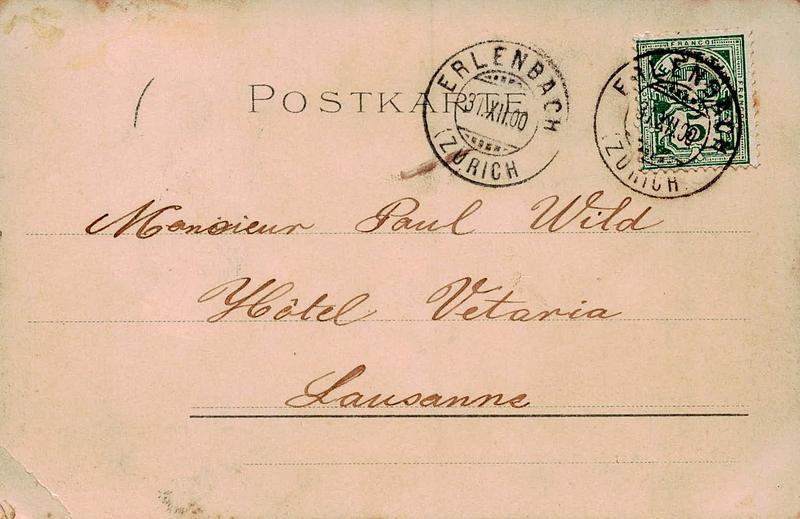 POSTKARTE
ERLENBACH
31.XII.00
(ZÜRICH)
FRANCO
5
ERLENBACH
31.XII.00
(ZÜRICH)
Monsieur Paul Wild
Hôtel Vetaria
Lausanne